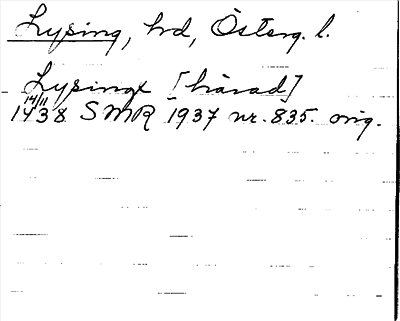 Lysing, hd, Österg. l.
Lysinge [härad]
14/11
1438 SMR 1937 nr. 835. orig.